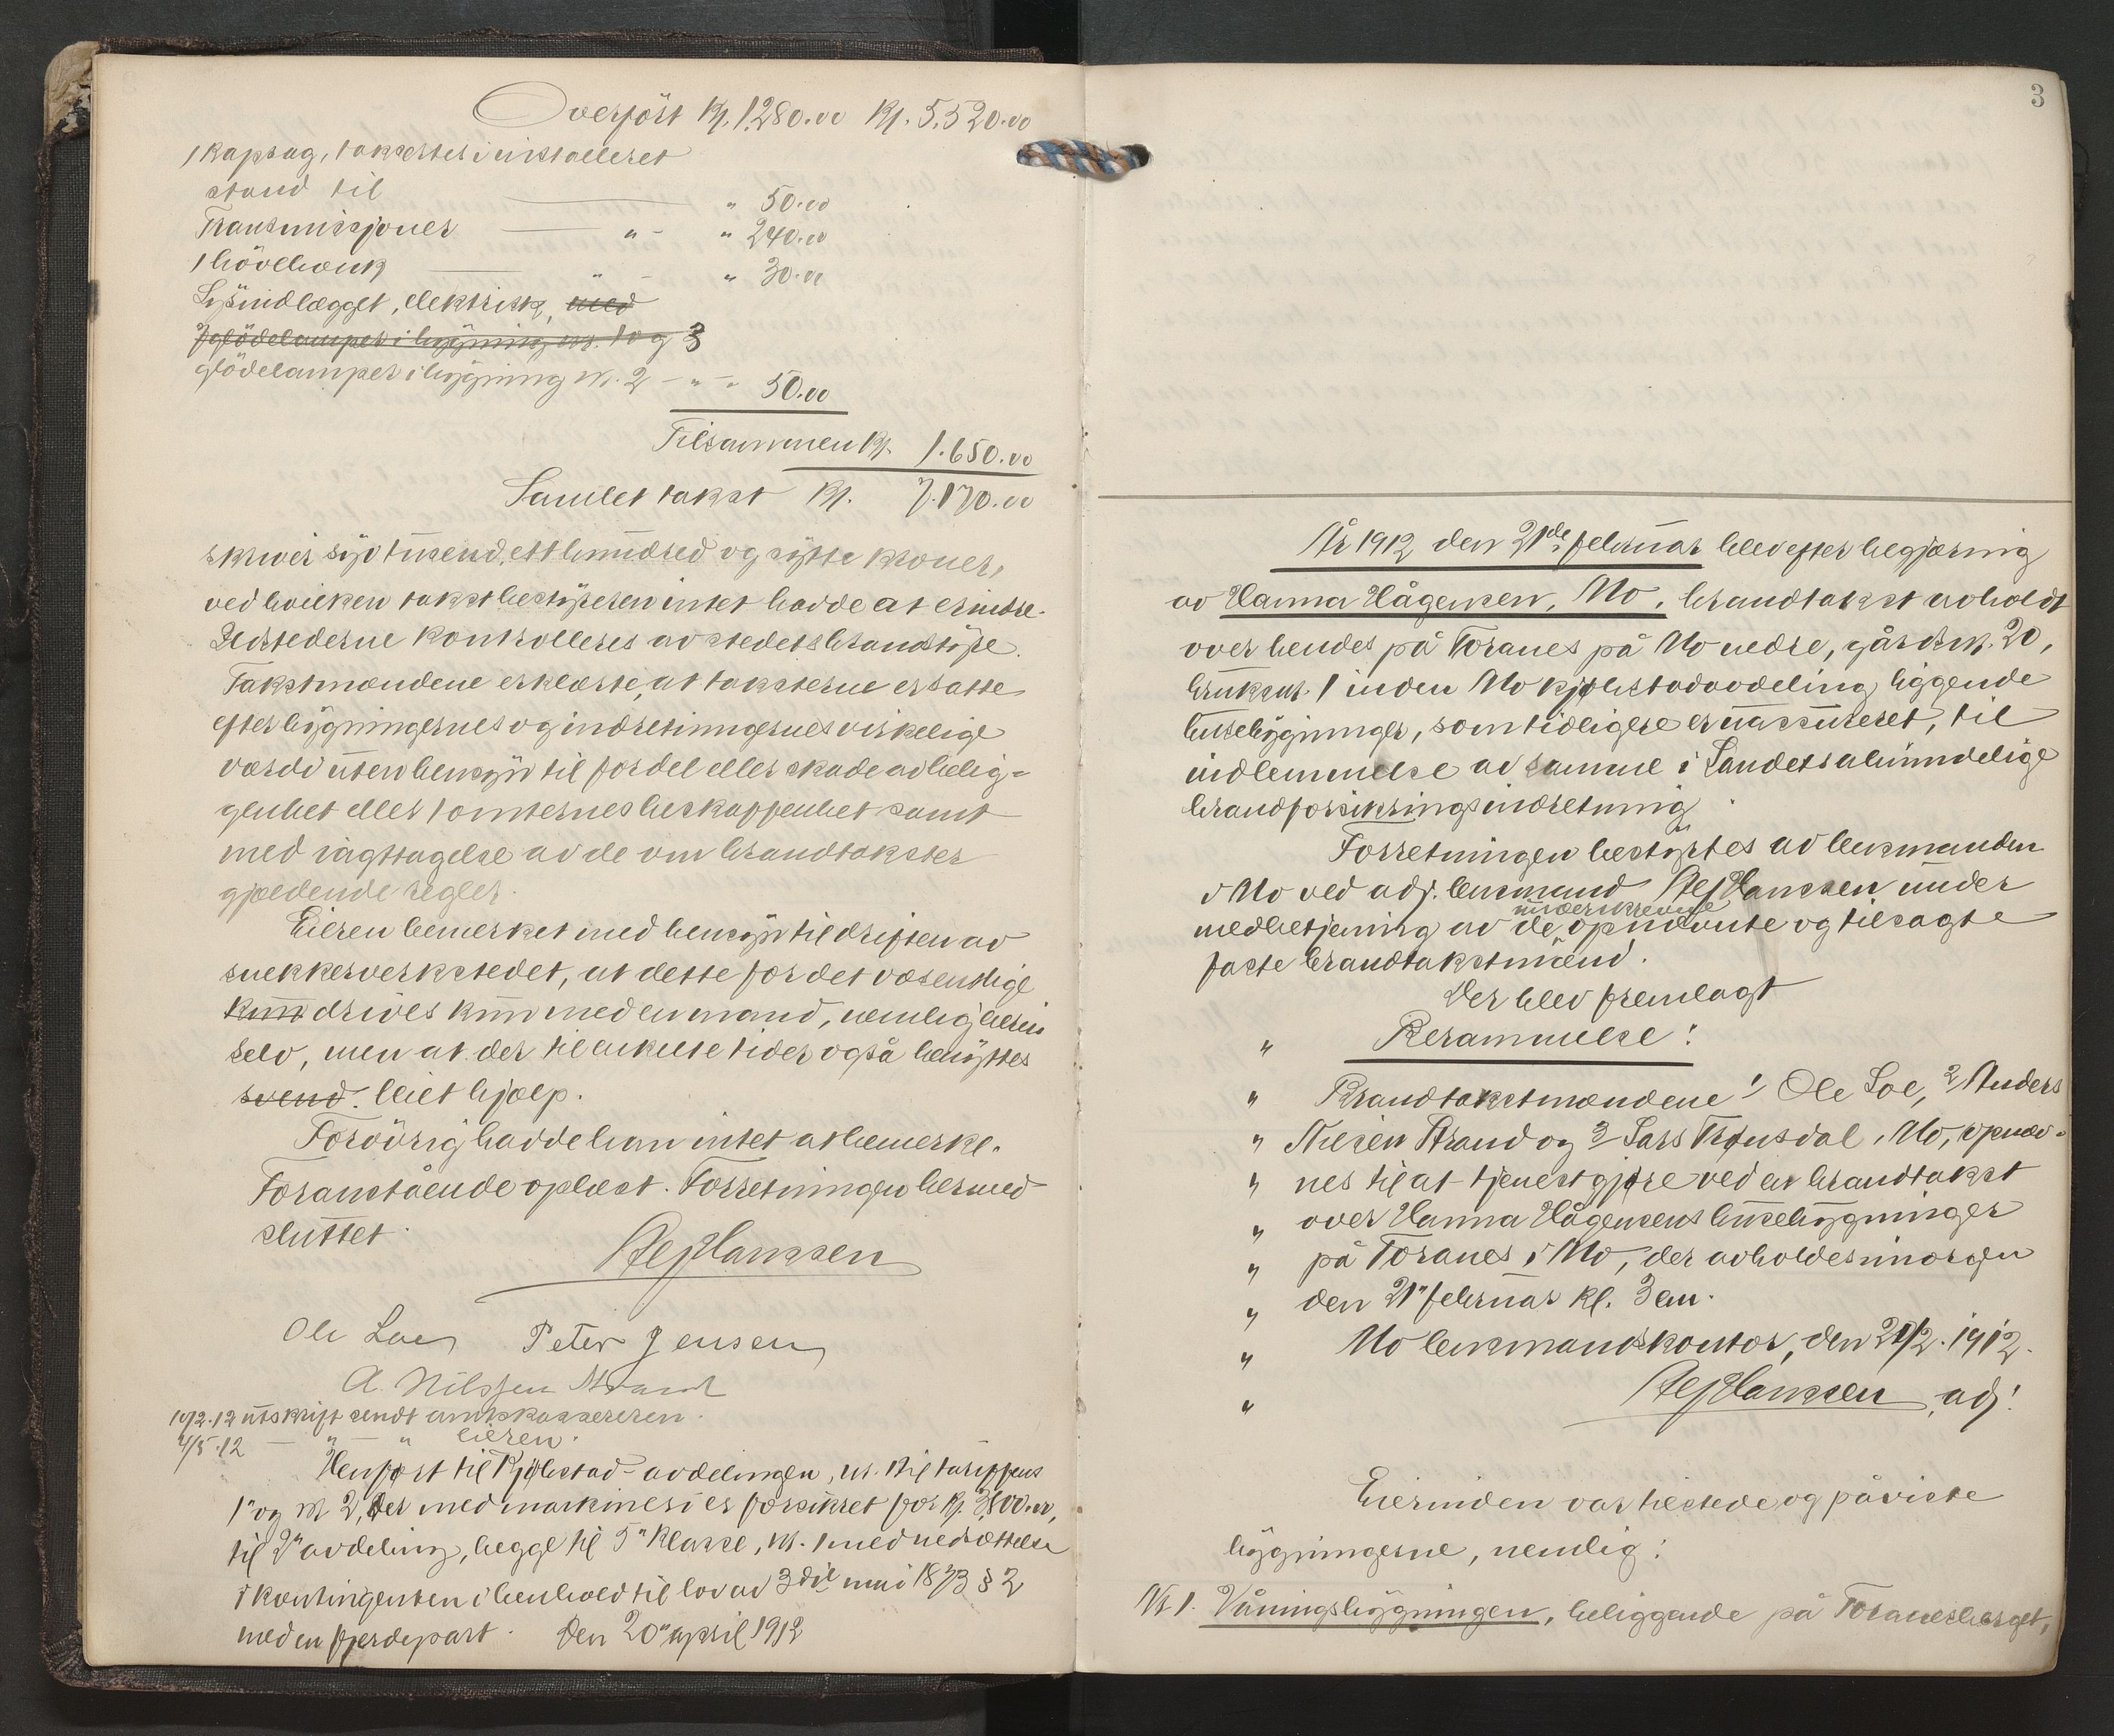 Overført Kr. 1280.00 Kr. 5.520.00
1 kapsag, taksertes i instalieret
stand til " 50.00
Transmissjoner " - " 240.00
1 hövlbenk " - " 30.00
Lysindlægget, elektrisk, med
7 glödelamper i bygning nr. 1 og 3
glödelamper i bygning nr. 2 - " - 50.00
Tilsammen Kr. 1.650.00
Samlet takst Kr. 7.170.00
skriver syv tusend, ett hundred og sytti kroner,
ved hvilken takst bestyreren intet hadde at erindre.
Ildstederne kontrolleres av stedets brandstyre.
Takstmændene erklærte, at taksterne er satte
efter bygningernes og indretningernes virkelige
værdi uten hensyn til fordel eller skade av belig-
genhet eller tomternes beskaffenhet samt
med iagttagelse av de om brandtakster
gjældende regler.
Eieren bemerket med hensyn til driften av
snekkerverkstedet, at dette for det væsentlige
kun drives kun med en mand, nemlig eieren
selv, men at der til enkelte tider også benyttes
svend. leiet hjælp.
Forövrig hadde han intet at bemerke.
Foranstående oplæst. Forretningen hermed
sluttet.
Hanssen
Ole Loe Peter Jensen
A. Nilssen Strand
10/2.12 utskrift sendt amtskassereren.
4/5.12 - " - " eieren.
Henført til Kjøbstad-avdelingen, nr. 1 til tariffens
1" og nr. 2, der med maskineri er forsikret for Kr. 3,800.00,
til 2" avdeling, begge til 5" klasse, nr. 1 med nedsættelse
i kontingenten i henhold til lov av 3die mai 1873 § 2
med en fjerdepart. Den 20" april 1912
3
År 1912 den 21de februar blev efter begjæring
av Hanna Hågensen, Mo, brandtakst avholdt
over hendes på Toranes på Mo nedre, gårdsnr. 20,
bruksnr. 1 inden Mo kjøbstadavdeling liggende
husebygninger, som tidligere er uassureret, til
indlemmelse av samme i Landets almindelige
brandforsikringsindretning.
Forretningen bestyrtes av lensmanden
i Mo ved adj. lensmand Hanssen under
underskrevne
medbetjening av de opnævnte og tilsagte
faste brandtakstmænd.
Der blev fremlagt
" Berammelse:
" Brandtakstmændene 1/ Ole Loe, 2/ Anders
" Nilsen Strand og 3/ Lars Tronsdal, Mo, opnæv-
" nes til at tjenestgjøre ved en brandtakst
" over Hanna Hågensens husebygninger
" på Toranes i Mo, der avholdes imorgen
" den 21" februar kl. 3 em.
" Mo lensmandskontor, den 20/2. 1912.
" Hanssen, adj!
Eierinden var tilstede og påviste
bygningerne, nemlig:
Nr 1. Våningsbygningen, beliggende på Toranesberget,